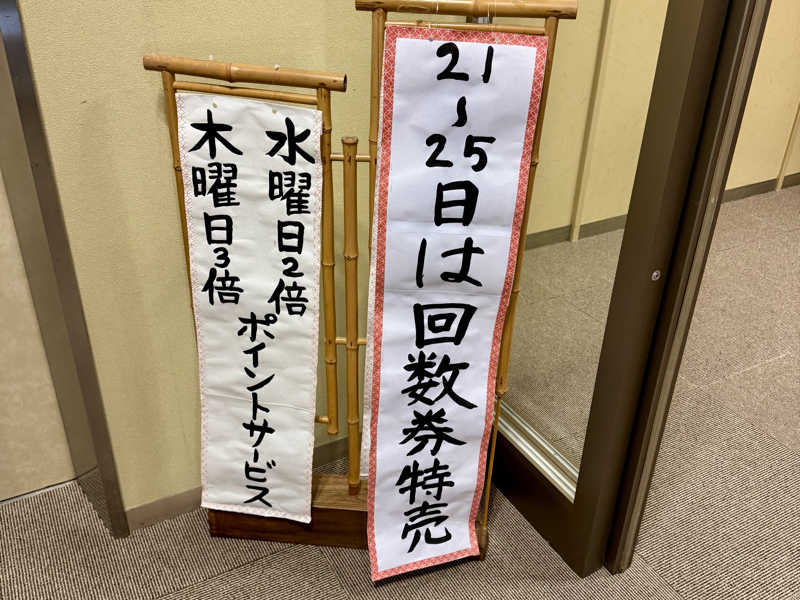 21〜25日は回数券特売
水曜日2倍
木曜日3倍
ポイントサービス